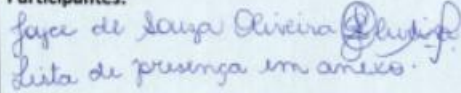 Participantes:
Joyce de Souza Oliveira
Lista de presença em anexo.